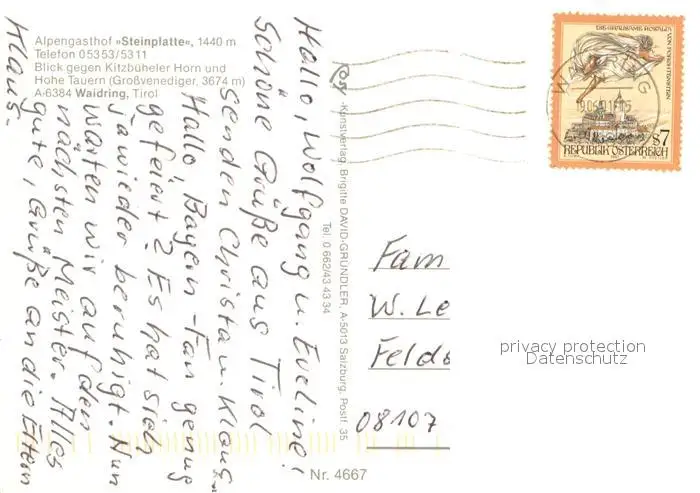 Alpengasthof »Steinplatte«, 1440 m
Telefon 05353/5311
Blick gegen Kitzbüheler Horn und
Hohe Tauern (Großvenediger, 3674 m)
A-6384 Waidring, Tirol
Hallo, Wolfgang u. Eveline!
Schöne Grüße aus Tirol
senden Christa u. Klaus.
Hallo, Bayern-Fan genug
gefeiert? Es hat sich
ja wieder beruhigt. Nun
warten wir auf den
nächsten "Meister". Alles
gute, Grüße an die Eltern
Klaus.
Kunstverlag, Brigitte DAVID-GRÜNDLER, A-5013 Salzburg, Postf. 35
Tel. 0 662/43 43 34
Nr. 4667
DIE GRAUSAME ROSALIA VON FORCHTENSTEIN
WAIDRING
S7
REPUBLIK ÖSTERREICH
Fam
W. Le
Felds
08107
privacy protection
Datenschutz